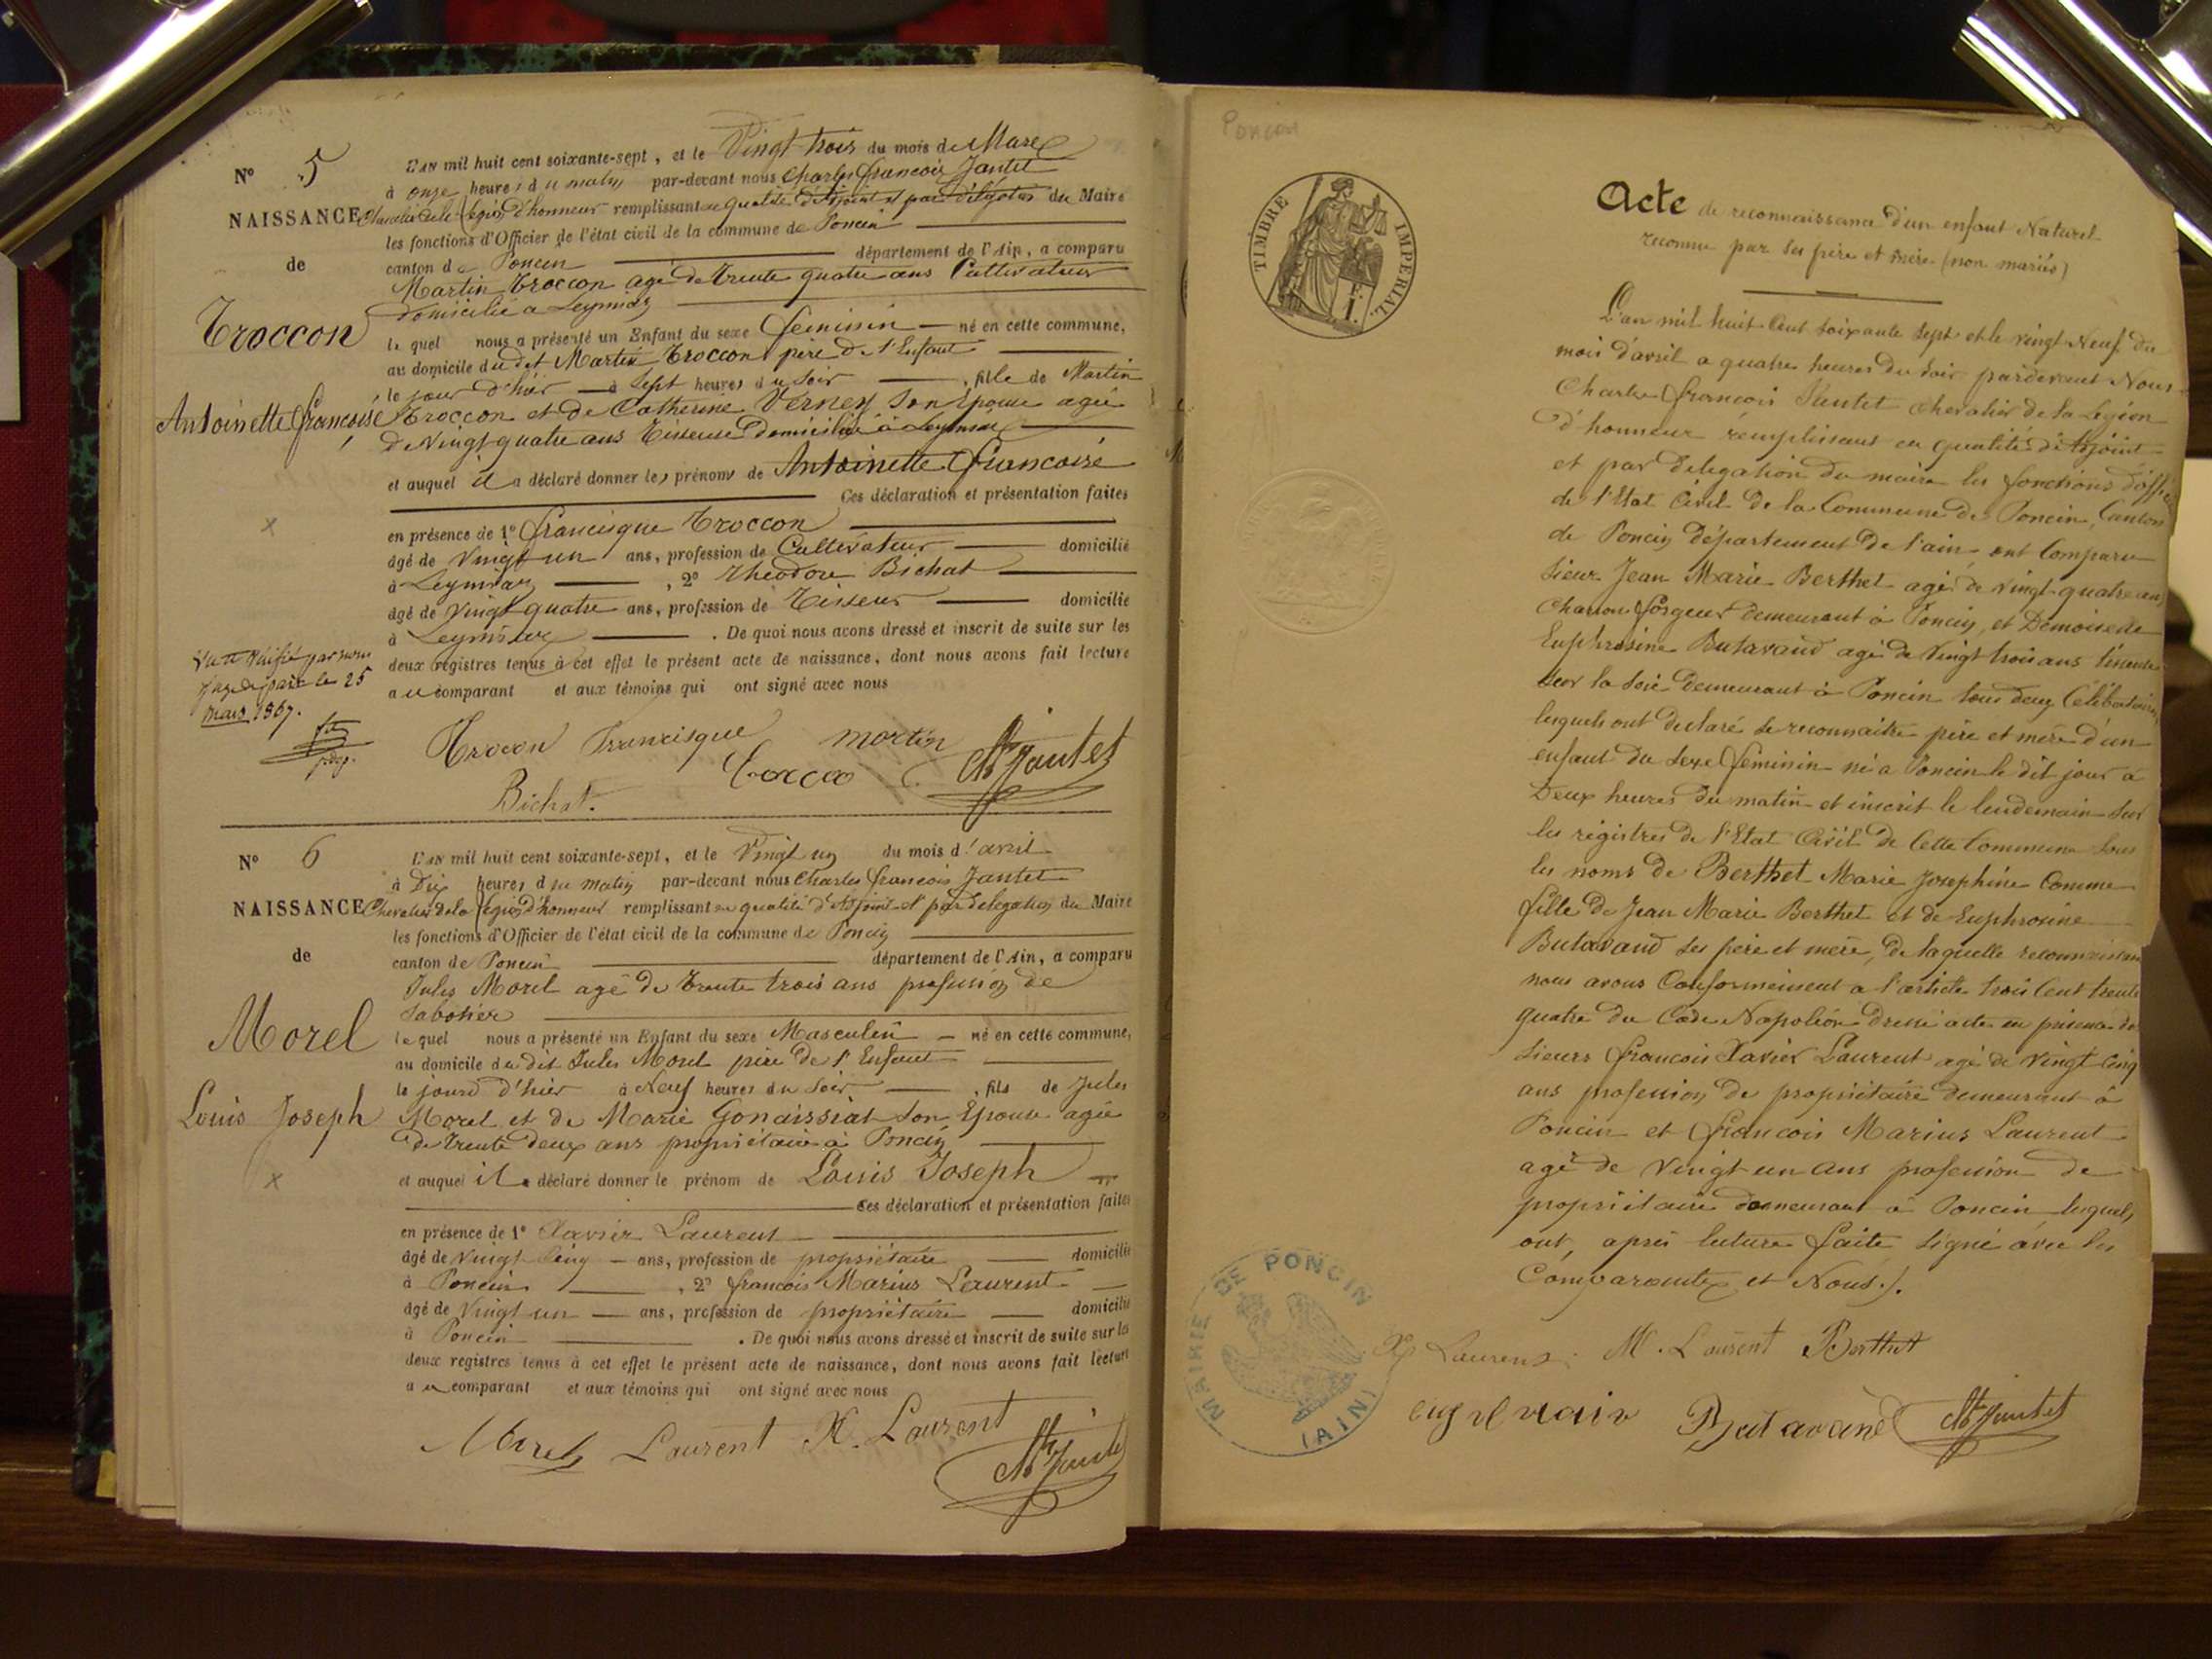 N° 5
NAISSANCE
de
Troccon
Antoinette françoise
L'AN mil huit cent soixante-sept, et le Vingt trois du mois de Mars
à onze heures du matin par-devant nous Charles françois Jantet
Chevalier de la légion d'honneur remplissant en qualité d'Adjoint et par délégation du Maire
les fonctions d'Officier de l'état civil de la commune de Poncin
canton de Poncin département de l'Ain, a comparu
Martin Troccon agé de trente quatre ans Cultivateur
domicilié a Leymiaz
lequel nous a présenté un Enfant du sexe féminin né en cette commune,
au domicile du dit Martin Troccon père de l'Enfant
le jour d'hier à Sept heures du soir, fille de Martin
Troccon et de Catherine Verney son Epouse agée
de Vingt quatre ans Tisseuse domiciliée à Leymiaz
et auquel il a déclaré donner les prénoms de Antoinette françoise
Ces déclaration et présentation faites
en présence de 1° francisque Troccon
âgé de Vingt un ans, profession de Cultivateur domicilié
à Leymiaz, 2° Théodore Bichat
âgé de Vingt quatre ans, profession de Tisseur domicilié
à Leymiaz. De quoi nous avons dressé et inscrit de suite sur les
deux registres tenus à cet effet le présent acte de naissance, dont nous avons fait lecture
au comparant et aux témoins qui ont signé avec nous
Vu et Vérifié par nous
Juge de paix le 25
mars 1867.
Trocon Francisque martin
Bichat. Ch Jantet
N° 6
NAISSANCE
de
Morel
Louis Joseph
L'AN mil huit cent soixante-sept, et le Vingt un du mois d'avril
à Dix heures du matin par-devant nous Charles françois Jantet
Chevalier de la légion d'honneur remplissant en qualité d'Adjoint et par délégation du Maire
les fonctions d'Officier de l'état civil de la commune de Poncin
canton de Poncin département de l'Ain, a comparu
Jules Morel agé de trente trois ans profession de
Sabotier
lequel nous a présenté un Enfant du sexe Masculin né en cette commune,
au domicile du dit Jules Morel père de l'Enfant
le jour d'hier à Neuf heures du soir, fils de Jules
Morel et de Marie Gonaissiat son Epouse agée
de trente deux ans propriétaire à Poncin
et auquel il a déclaré donner le prénom de Louis Joseph
Ces déclaration et présentation faites
en présence de 1° Xavier Laurent
âgé de Vingt Cinq ans, profession de propriétaire domicilié
à Poncin, 2° françois Marius Laurent
âgé de Vingt un ans, profession de propriétaire domicilié
à Poncin. De quoi nous avons dressé et inscrit de suite sur les
deux registres tenus à cet effet le présent acte de naissance, dont nous avons fait lecture
au comparant et aux témoins qui ont signé avec nous
Morel Laurent X. Laurent
Ch Jantet
Poncin
TIMBRE IMPERIAL
1F.
Acte de reconnaissance d'un enfant Naturel
reconnu par ses père et mère (non mariés)
L'an mil huit Cent soixante sept et le vingt Neuf du
mois d'avril a quatre heures du soir pardevant Nous
Charles françois Jantet chevalier de la Légion
d'honneur remplissant en qualité d'Adjoint
et par délégation du maire les fonctions d'offic
de l'Etat Civil de la Commune de Poncin, Canton
de Poncin département de l'ain, ont Comparu
Sieur Jean Marie Berthet agé de vingt-quatre ans
Charron forgeur demeurant à Poncin, et Demoiselle
Euphrosine Butavand agé de Vingt trois ans
sur la soie demeurant à Poncin tous deux Célibataires,
lesquels ont déclaré se reconnaitre père et mère d'un
enfant du sexe féminin né a Poncin le dit jour à
Deux heures du matin et inscrit le lendemain sur
les régistres de l'Etat Civil de Cette Commune sous
les noms de Berthet Marie Josephine Comme
fille de Jean Marie Berthet et de Euphrosine
Butavand ses père et mère, De laquelle reconnaissan
nous avons Conformément a l'article trois Cent trente
quatre du Code Napoléon dressé acte en présence de
Sieurs françois Xavier Laurent agé de vingt Cinq
ans profession de propriétaire demeurant à
Poncin et françois Marius Laurent
agé de vingt un ans profession de
propriétaire demeurant à Poncin lesquels
ont, après lecture faite signé avec les
Comparants et Nous./.
X Laurent M. Laurent Berthet
Butavand Ch Jantet
MAIRIE DE PONCIN
(AIN)